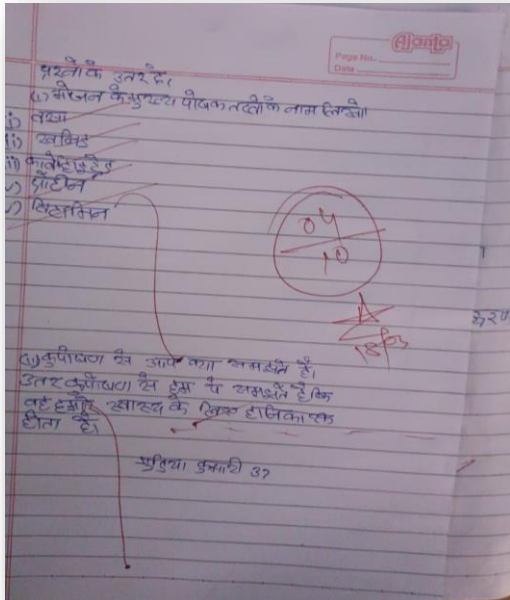 Ajanta
Page No.
Date
प्रश्नों के उत्तर दें।
(i) भोजन के मुख्य पोषक तत्वों के नाम लिखो।
i) वसा
ii) खनिज
iii) कार्बोहाइड्रेड
प्रोटीन
विटामिन
04
10
18/03
(ii) कुपोषण से आप क्या समझते हैं।
उत्तर कुपोषण से हम ये समझते हैं कि
वह हमारे स्वास्थ्य के लिए हानिकारक
होता है।
कुमारी 37